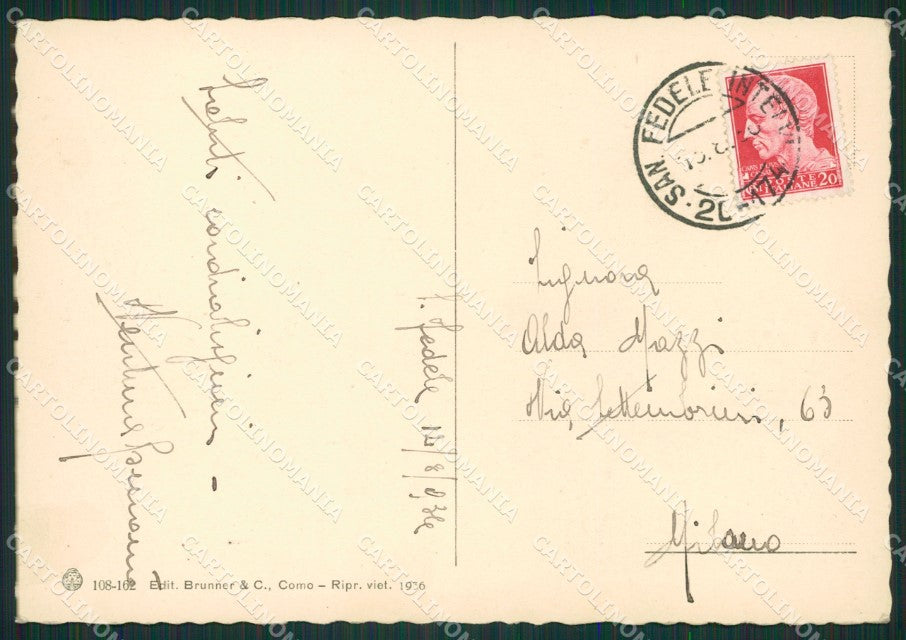 Saluti cordialissimi -
Ventura
S. Fedele 14/8/936
SAN FEDELE INTELVI
20
POSTE ITALIANE 20
Signora
Alda Mazzi
Via Settembrini, 63
Milano
108-162 Edit. Brunner & C., Como – Ripr. viet. 1936
CARTOLINOMANIA